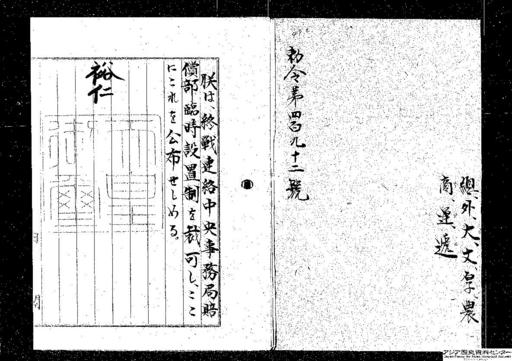 總、外、大、文、厚、農
商、運、遞
勅令第四百九十二號
朕は、終戰連絡中央事務局賠
償部臨時設置制を裁可し、ここ
にこれを公布せしめる。
裕仁
月
アジア歴史資料センター